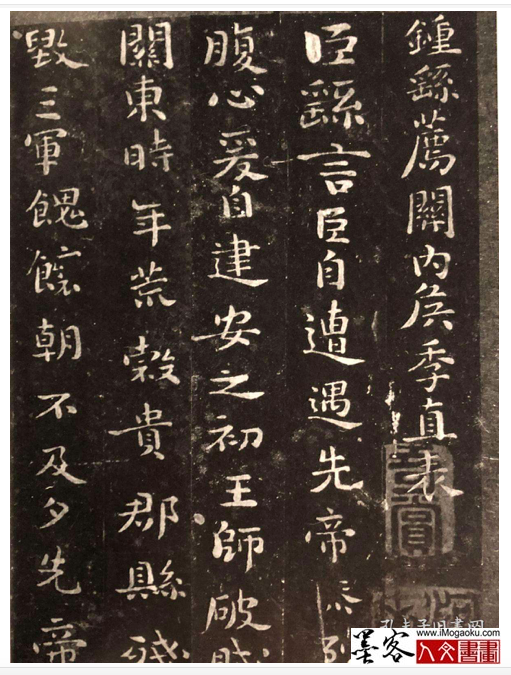 鍾繇薦關內侯季直表
臣繇言臣自遭遇先帝
腹心爰自建安之初王師破賊
關東時年荒穀貴郡縣殘
毀三軍餽饟朝不及夕先帝
孔夫子旧书网
墨客
www.iMogaoku.com